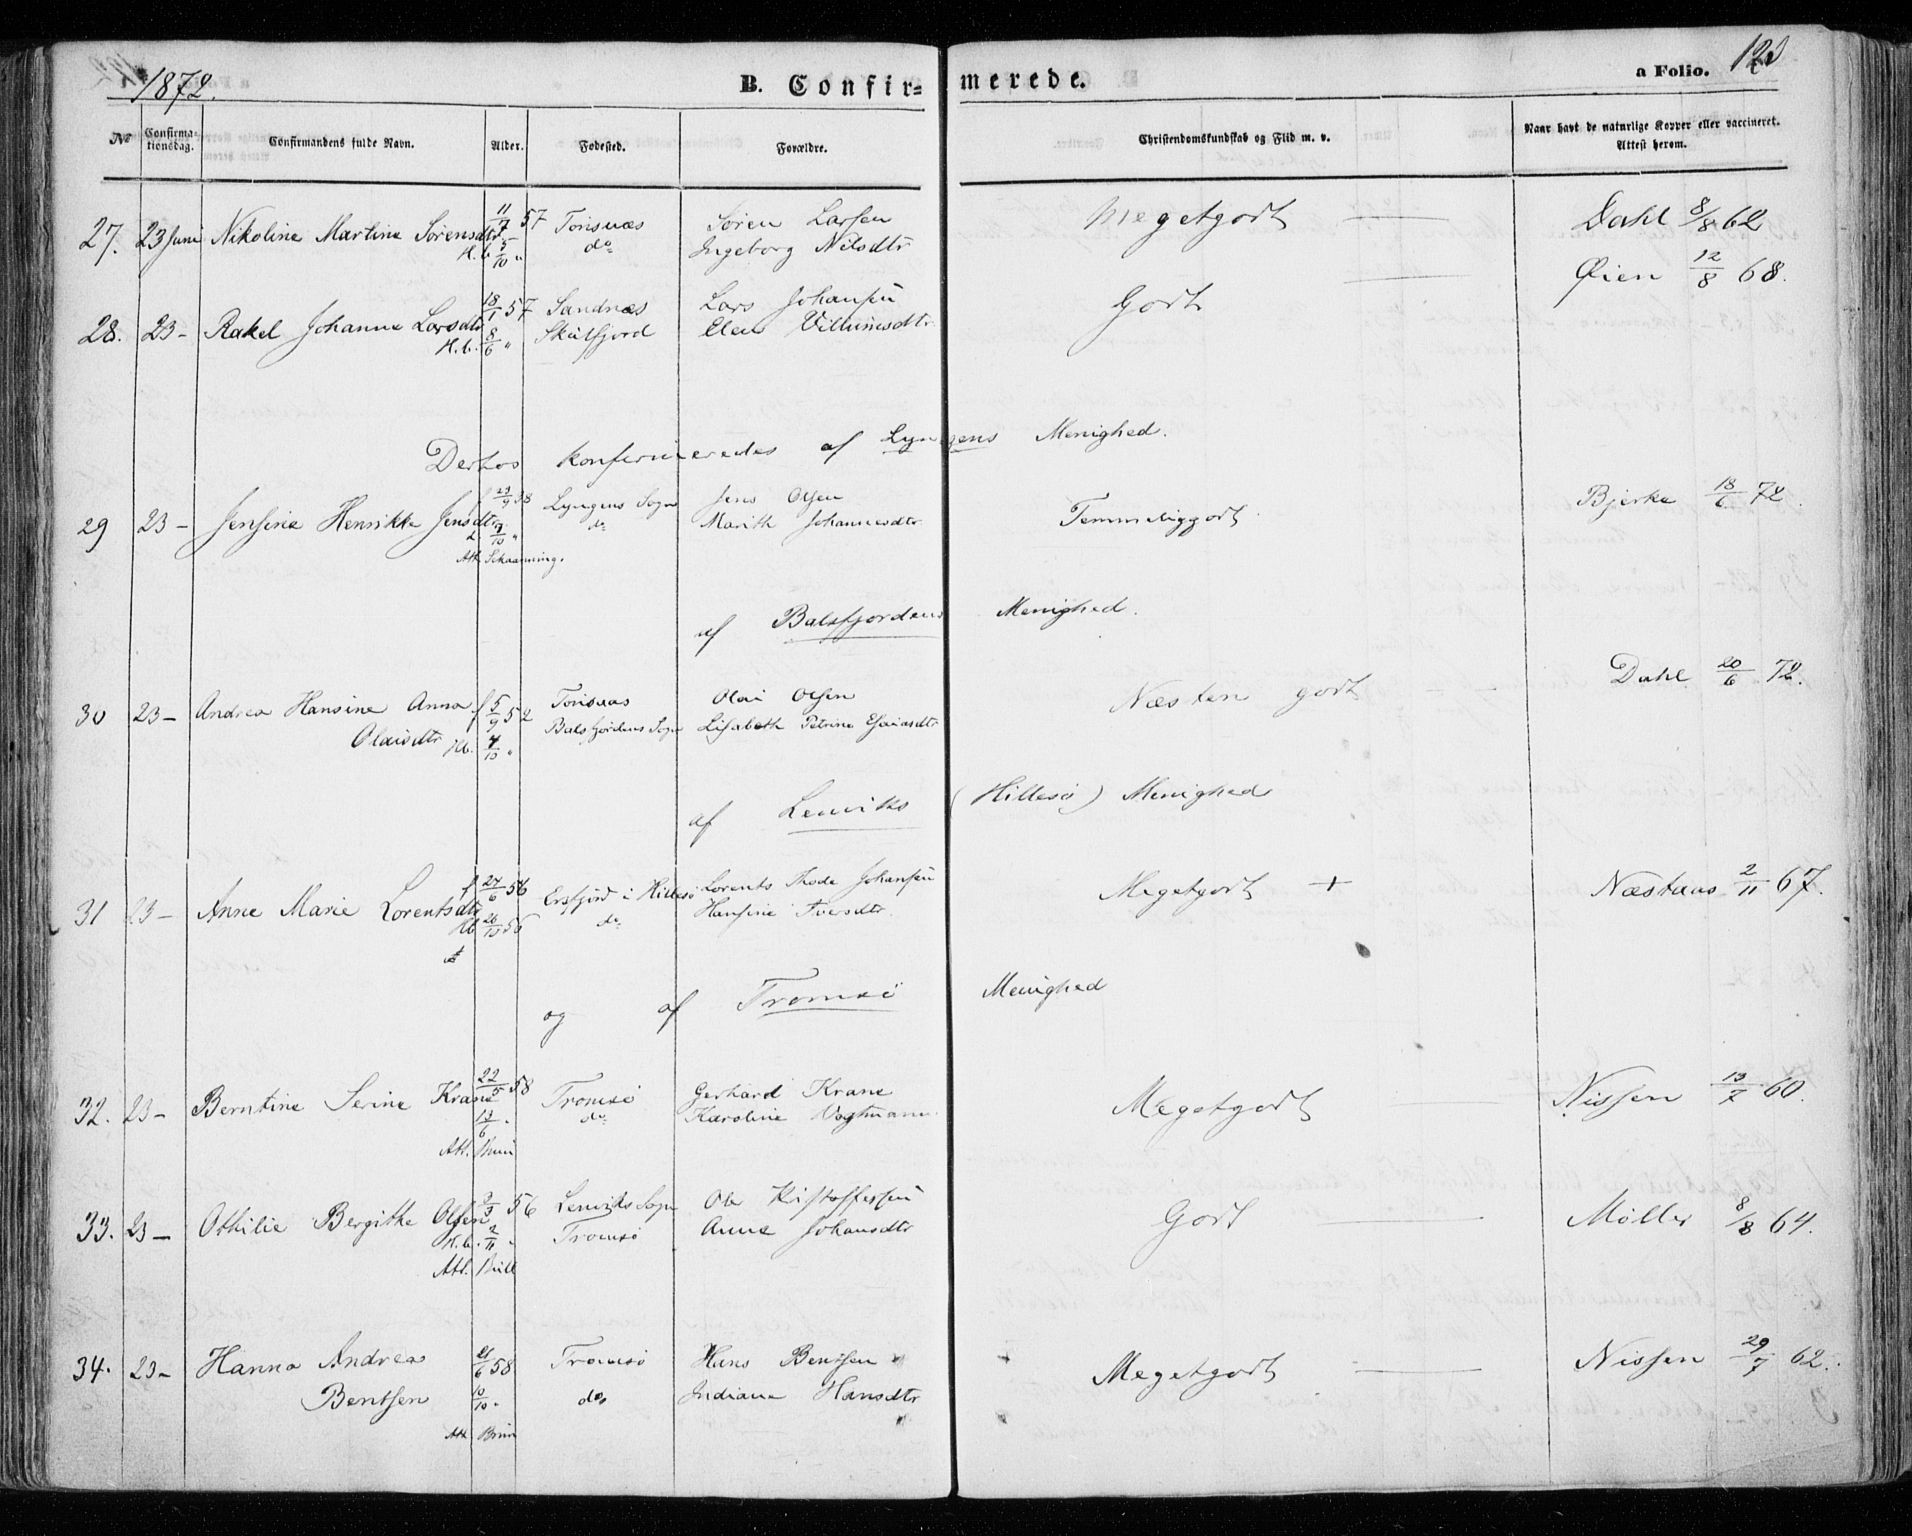 1872.
B. Confir=
merede.
a Folio. 123
№
Confirma-
tionsdag.
Confirmandens fulde Navn.
Alder.
Fødested.
Forældre.
Christendomskundskab og Flid m. v.
Naar havt de naturlige Kopper eller vaccineret.
Attest herom.
27. 23 Juni Nikoline Martine Sørensdtr 11/7 57 Tonsnæs Søren Larsen Megetgodt Dahl 8/8 62
H.b. 5/10 " do Ingeborg Nilsdtr
28. 23 - Rakel Johanne Larsdtr 18/1 57 Sandnæs Lars Johansen Godt Øien 12/8 68.
H.b. 8/6 " Skulfjord
Derhos konfirmeredes af Lyngens Menighed.
29 23 - Jensine Henrikke Jensdtr 58 Lyngens Sogn Jens Olsen Temmeliggodt Bjerke 18/6 72.
do Marith Johannesdtr
Att. Schaanning.
af Balsfjordens Menighed.
30 23 - Andrea Hansine Anna f 5/9 52 Tonsnæs Olai Olsen Næsten godt Dahl 20/6 72.
Olaisdtr Hb. 4/10 " Balsfjordens Sogn Lisabeth Petrine Esaiasdtr
af Lenviks (Hillesø) Menighed
31 23 - Anne Marie Lorentsdtr f 24/6 56 Ersfjord i Hillesø Lorents Thode Johansen Megetgodt + Næstaas 2/11 67.
Hb 26/10 56 do Hansine Iversdtr
og af Tromsö Menighed
32. 23 - Berntine Serine Krane 22/5 58 Tromsö Gerhard Krane Megetgodt Nissen 13/7 60.
13/6 " do Karoline Vogtmann
Att.
33. 23 - Othilie Bergitte Olsen 56 Lenviks Sogn Ole Kristoffersen Godt Møller 8/8 64.
H.b. 2/11 " Tromsö Anne Johansdtr
Att.
34. 23 - Hanna Andrea 21/6 58 Tromsö Hans Bentsen Megetgodt Nissen 29/7 62.
Bentsen 10/10 " do Indiane Hansdtr
Att.